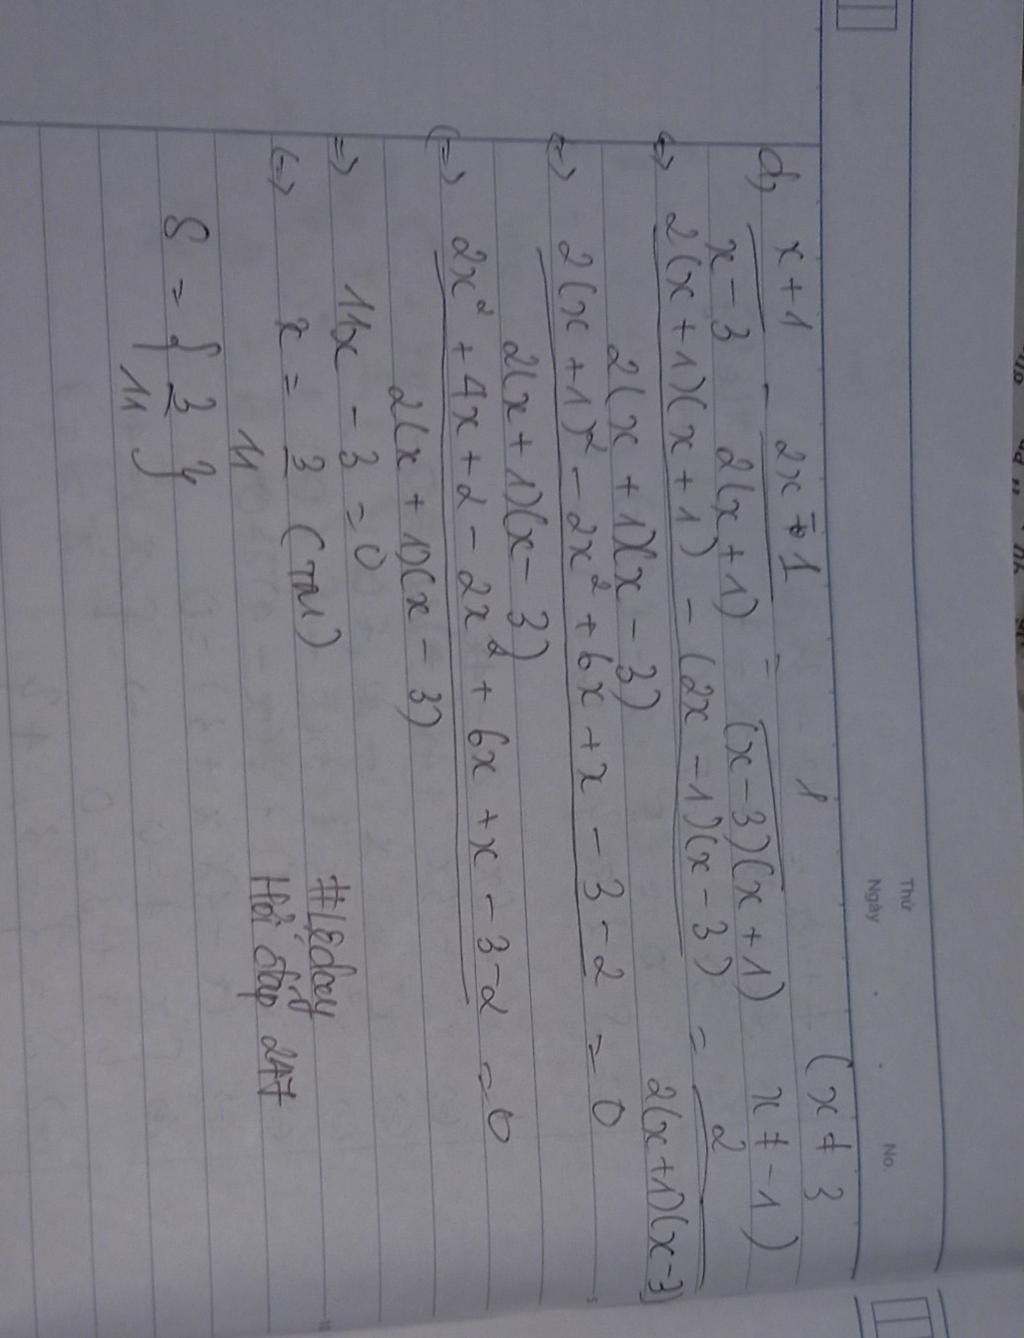 Thứ
Ngày
No.
d, x+1/x-3 - 2x-1/2(x+1) = 1/(x-3)(x+1) (x ≠ 3 x ≠ -1)
<=> 2(x+1)(x+1) - (2x-1)(x-3)/2(x+1)(x-3) = 2/2(x+1)(x-3)
<=> 2(x+1)² - 2x² + 6x + x - 3 - 2/2(x+1)(x-3) = 0
<=> 2x² + 4x + 2 - 2x² + 6x + x - 3 - 2/2(x+1)(x-3) = 0
=> 11x - 3 = 0
<=> x = 3/11 (TM)
S = { 3/11 }
Hỏi đáp 247